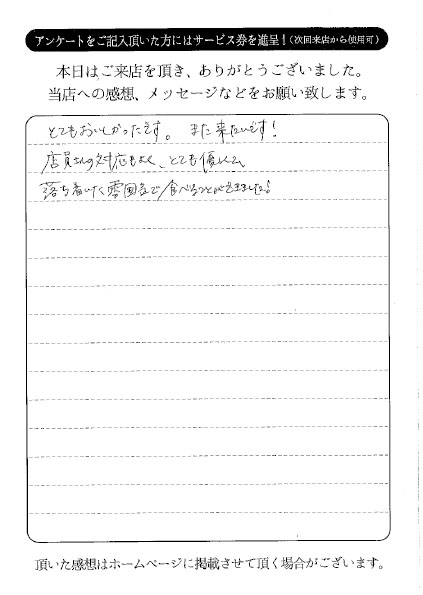 アンケートをご記入頂いた方にはサービス券を進呈！（次回来店から使用可）
本日はご来店を頂き、ありがとうございました。
当店への感想、メッセージなどをお願い致します。
とてもおいしかったです。 また来たいです！
店員さんの対応もよく、とても優しく、
落ち着いた雰囲気で食べることができました！
頂いた感想はホームページに掲載させて頂く場合がございます。